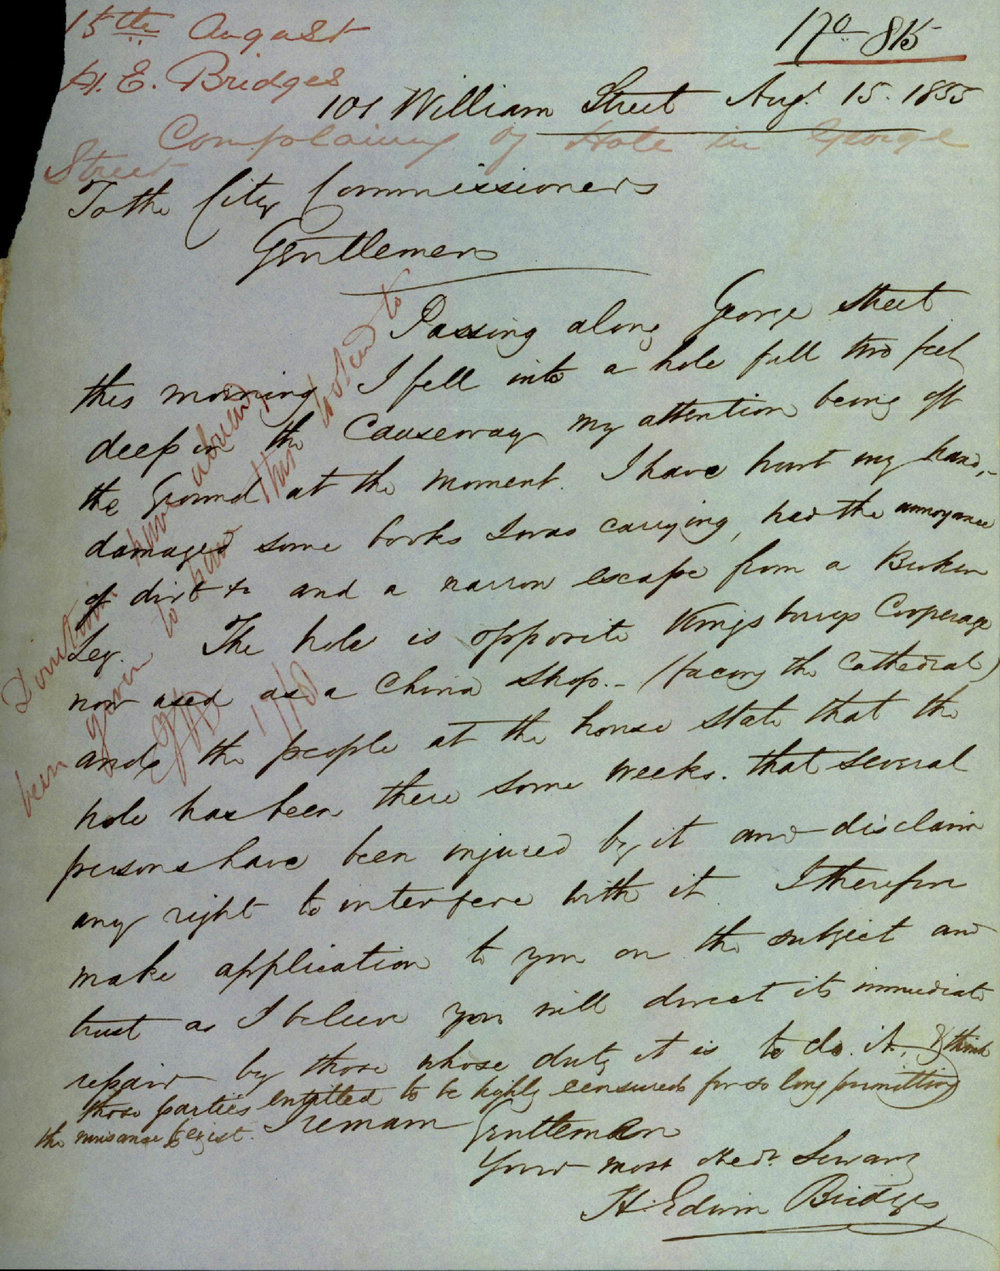 15th August
No 815
H. E. Bridges
101 William Street Augt 15. 1855
Complaining of Hole in George
Street
To the City Commissioners
Gentlemen
Passing along George Street
this morning I fell into a hole full two feet
deep in the Causeway my attention being off
the Ground at the moment. I have hurt my hand,
damaged some books I was carrying, had the annoyance
of dirt &c and a narrow escape from a Broken
Leg. The hole is opposite Kingsburys Cooperage
now used as a China Shop. - (facing the Cathedral)
and the people at the house state that the
hole has been there some weeks. that several
persons have been injured by it and disclaim
any right to interfere with it I therefore
make application to you on the subject and
trust as I believe you will direct its immediate
repair by those whose duty it is to do it, & think
those parties entitled to be highly censured for so long permitting
the nuisance to exist. I remain
Gentlemen
Your most Obedt Servant
H. Edwin Bridges
Directions have already
been given to have this looked to
17/8